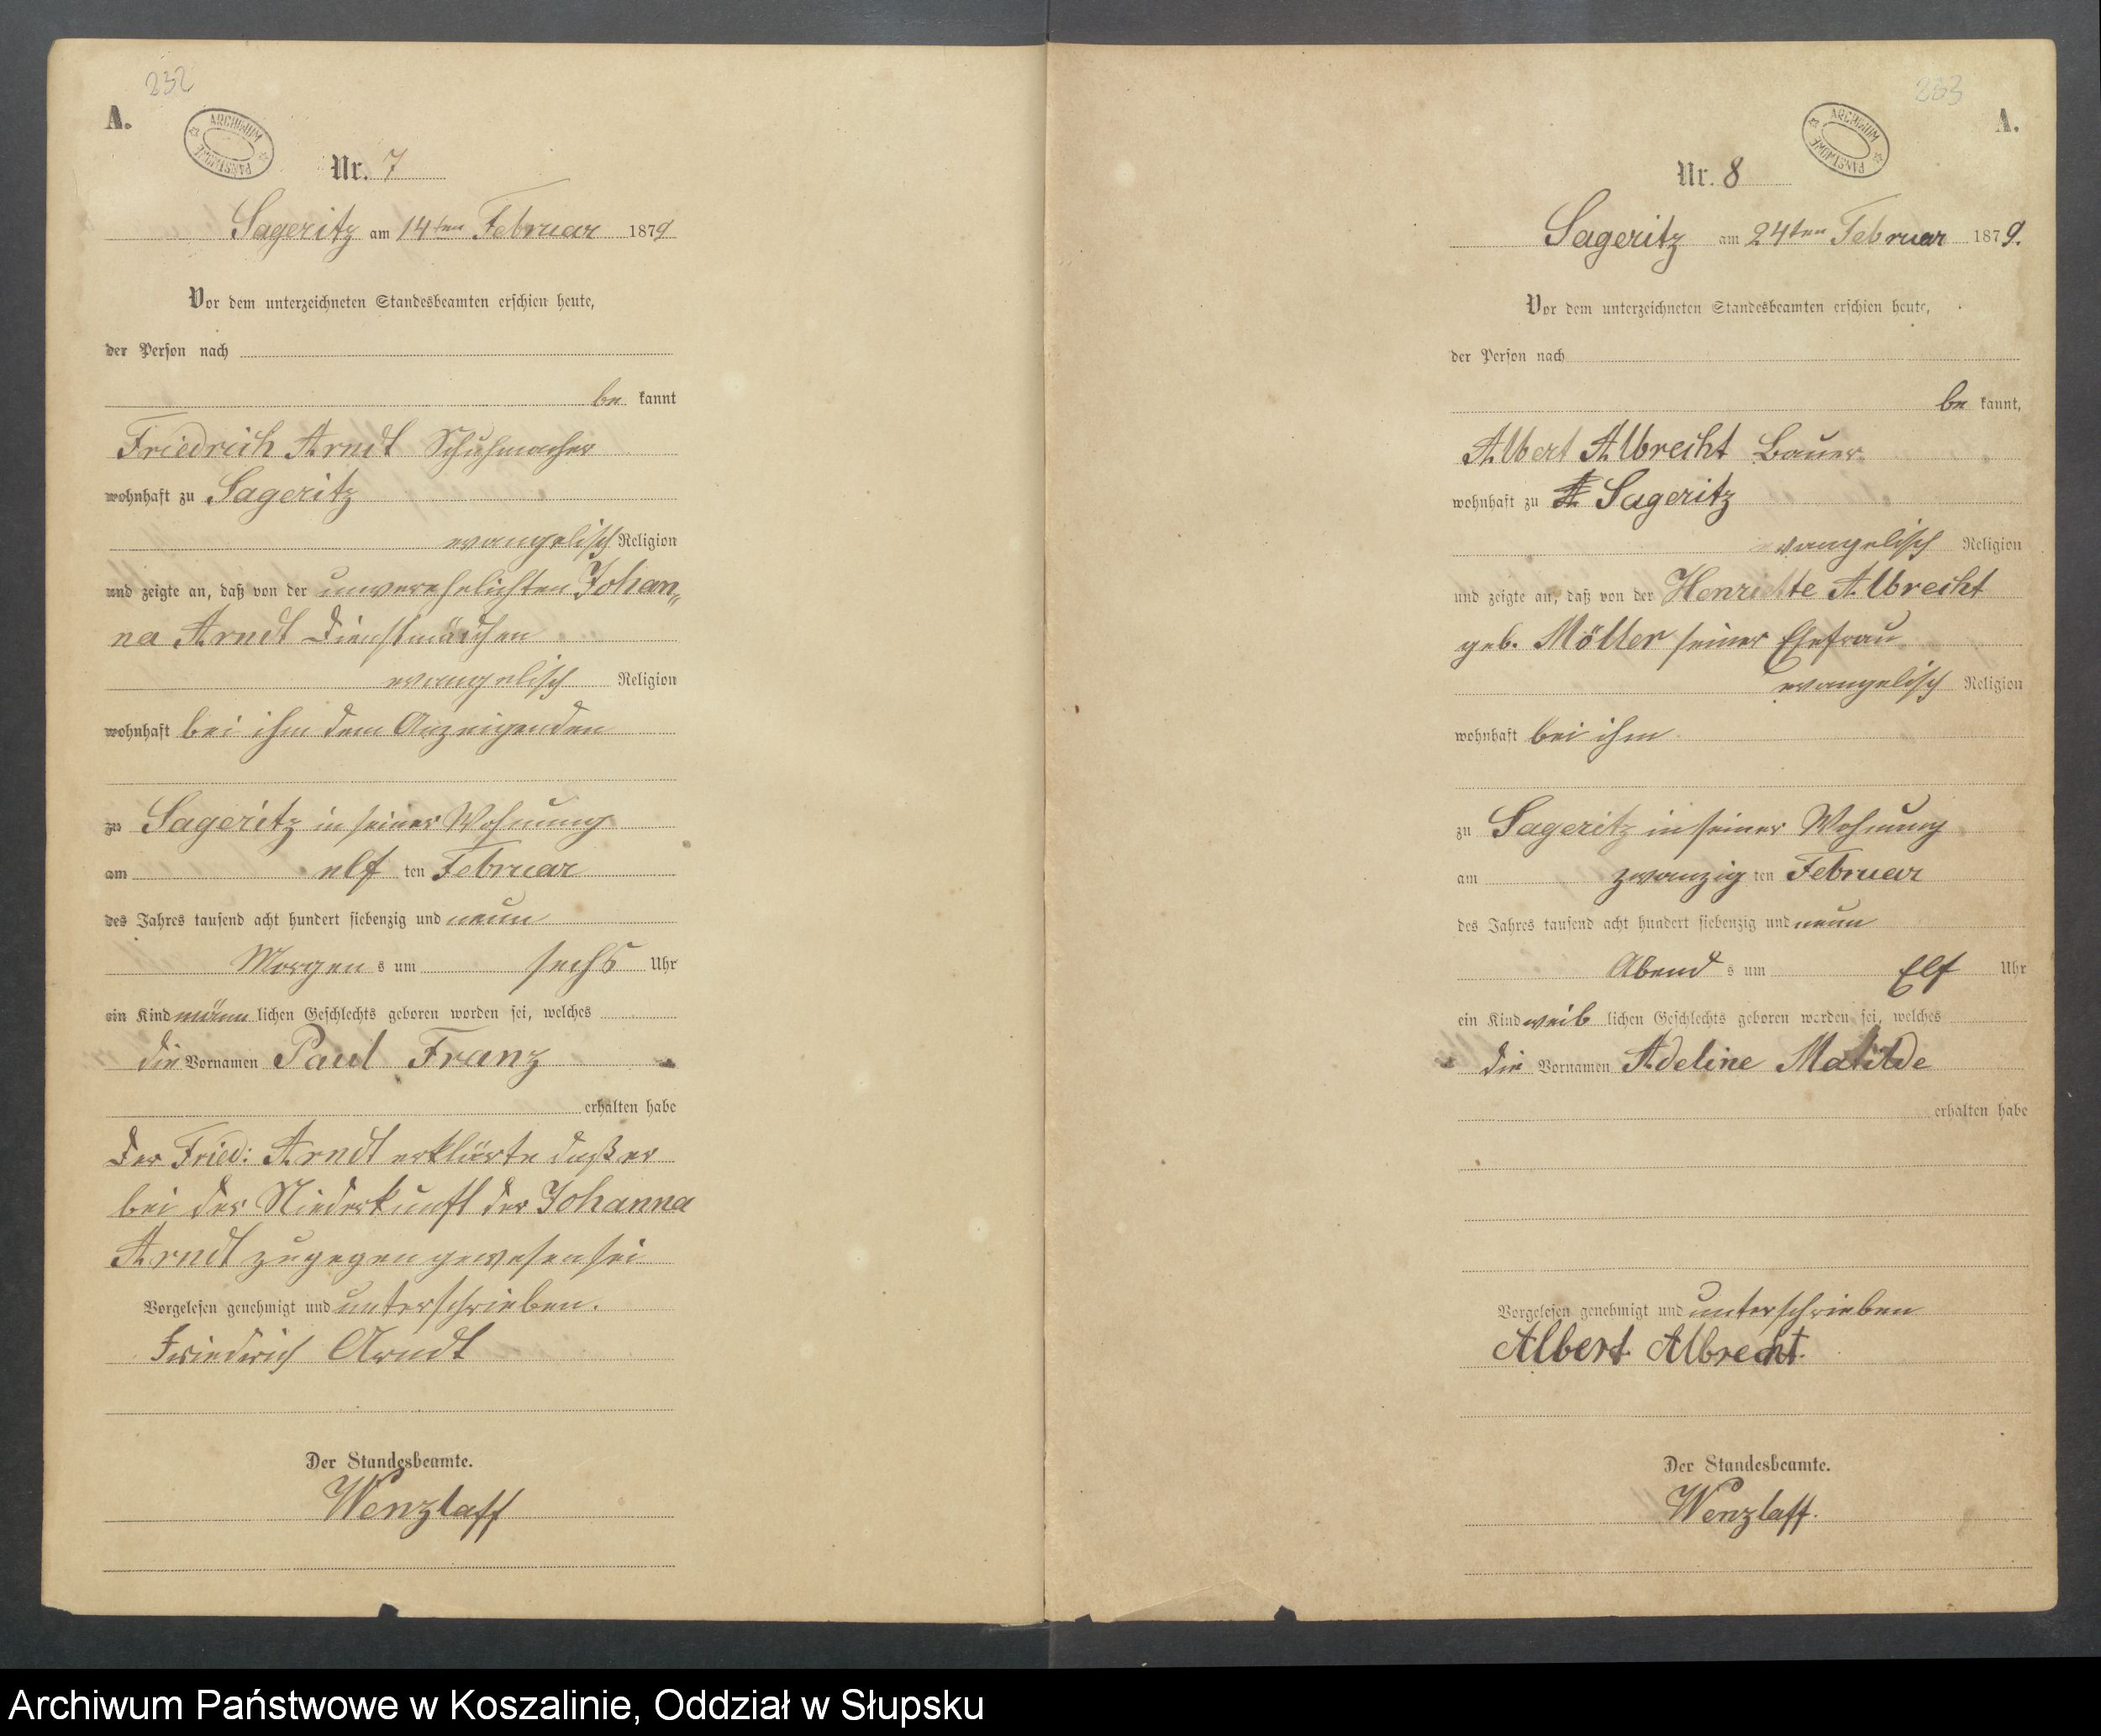 232
A.
ARCHIWUM PAŃSTWOWE
Nr. 7
Sageritz am 14ten Februar 1879
Vor dem unterzeichneten Standesbeamten erschien heute,
der Person nach
be kannt
Friedrich Arndt Schuhmacher
wohnhaft zu Sageritz
evangelisch Religion
und zeigte an, daß von der unverehelichten Johan„
na Arndt Dienstmädchen
evangelisch Religion
wohnhaft bei ihm dem Anzeigenden
zu Sageritz in seiner Wohnung
am elf ten Februar
des Jahres tausend acht hundert siebenzig und neun
Morgen s um sechs Uhr
ein Kind männ lichen Geschlechts geboren worden sei, welches
die Vornamen Paul Franz
erhalten habe
Der Fried: Arndt erklärte daß er
bei der Niederkunft der Johanna
Arndt zugegen gewesen sei
Vorgelesen genehmigt und unterschrieben.
Friedrich Arndt
Der Standesbeamte.
Wenzlaff
233
A.
ARCHIWUM PAŃSTWOWE
Nr. 8
Sageritz am 24ten Februar 1879.
Vor dem unterzeichneten Standesbeamten erschien heute,
der Person nach
be kannt,
Albert Albrecht Bauer
wohnhaft zu Sageritz
evangelisch Religion
und zeigte an, daß von der Henriette Albrecht
geb. Möller seiner Ehefrau
evangelisch Religion
wohnhaft bei ihm
zu Sageritz in seiner Wohnung
am zwanzig ten Februar
des Jahres tausend acht hundert siebenzig und neun
Abend s um Elf Uhr
ein Kind weib lichen Geschlechts geboren worden sei, welches
die Vornamen Adeline Matilde
erhalten habe
Vorgelesen genehmigt und unterschrieben
Albert Albrecht.
Der Standesbeamte.
Wenzlaff.
Archiwum Państwowe w Koszalinie, Oddział w Słupsku